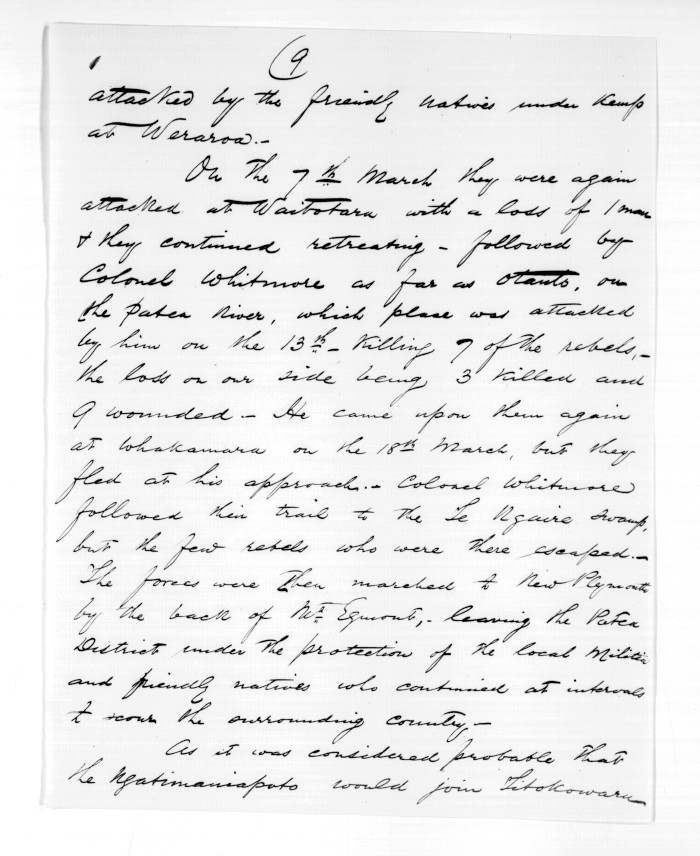 (9
attacked by the friendly natives under Kemp
at Weraroa.-
On the 7th March they were again
attacked at Waitotara with a loss of 1 man
& they continued retreating - followed by
Colonel Whitmore as far as Otauto, on
the Patea River, which place was attacked
by him on the 13th - Killing 7 of the rebels,-
the loss on our side being 3 killed and
9 wounded - He came upon them again
at Whakamara on the 18th March, but they
fled at his approach.- Colonel Whitmore
followed their trail to the Te Ngaire swamp,
but the few rebels who were there escaped.-
The forces were then marched to New Plymouth
by the back of Mt Egmont,- leaving the Patea
District under the protection of the local Militia
and friendly natives who continued at intervals
to scour the surrounding country -
As it was considered probable that
the Ngatimaniapoto would join Titokowaru